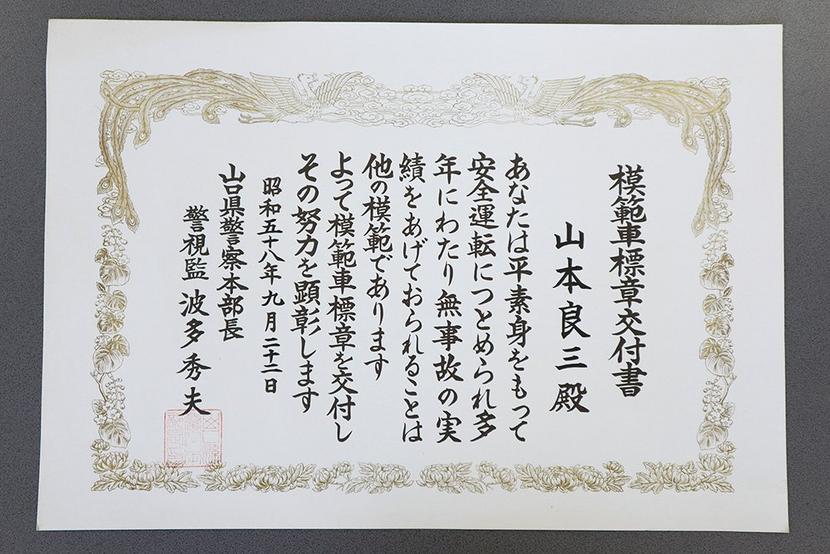 模範車標章交付書
山本良三殿
あなたは平素身をもって
安全運転につとめられ多
年にわたり無事故の実
績をあげておられることは
他の模範であります
よって模範車標章を交付し
その努力を顕彰します
昭和五十八年九月二十二日
山口県警察本部長
警視監 波多秀夫